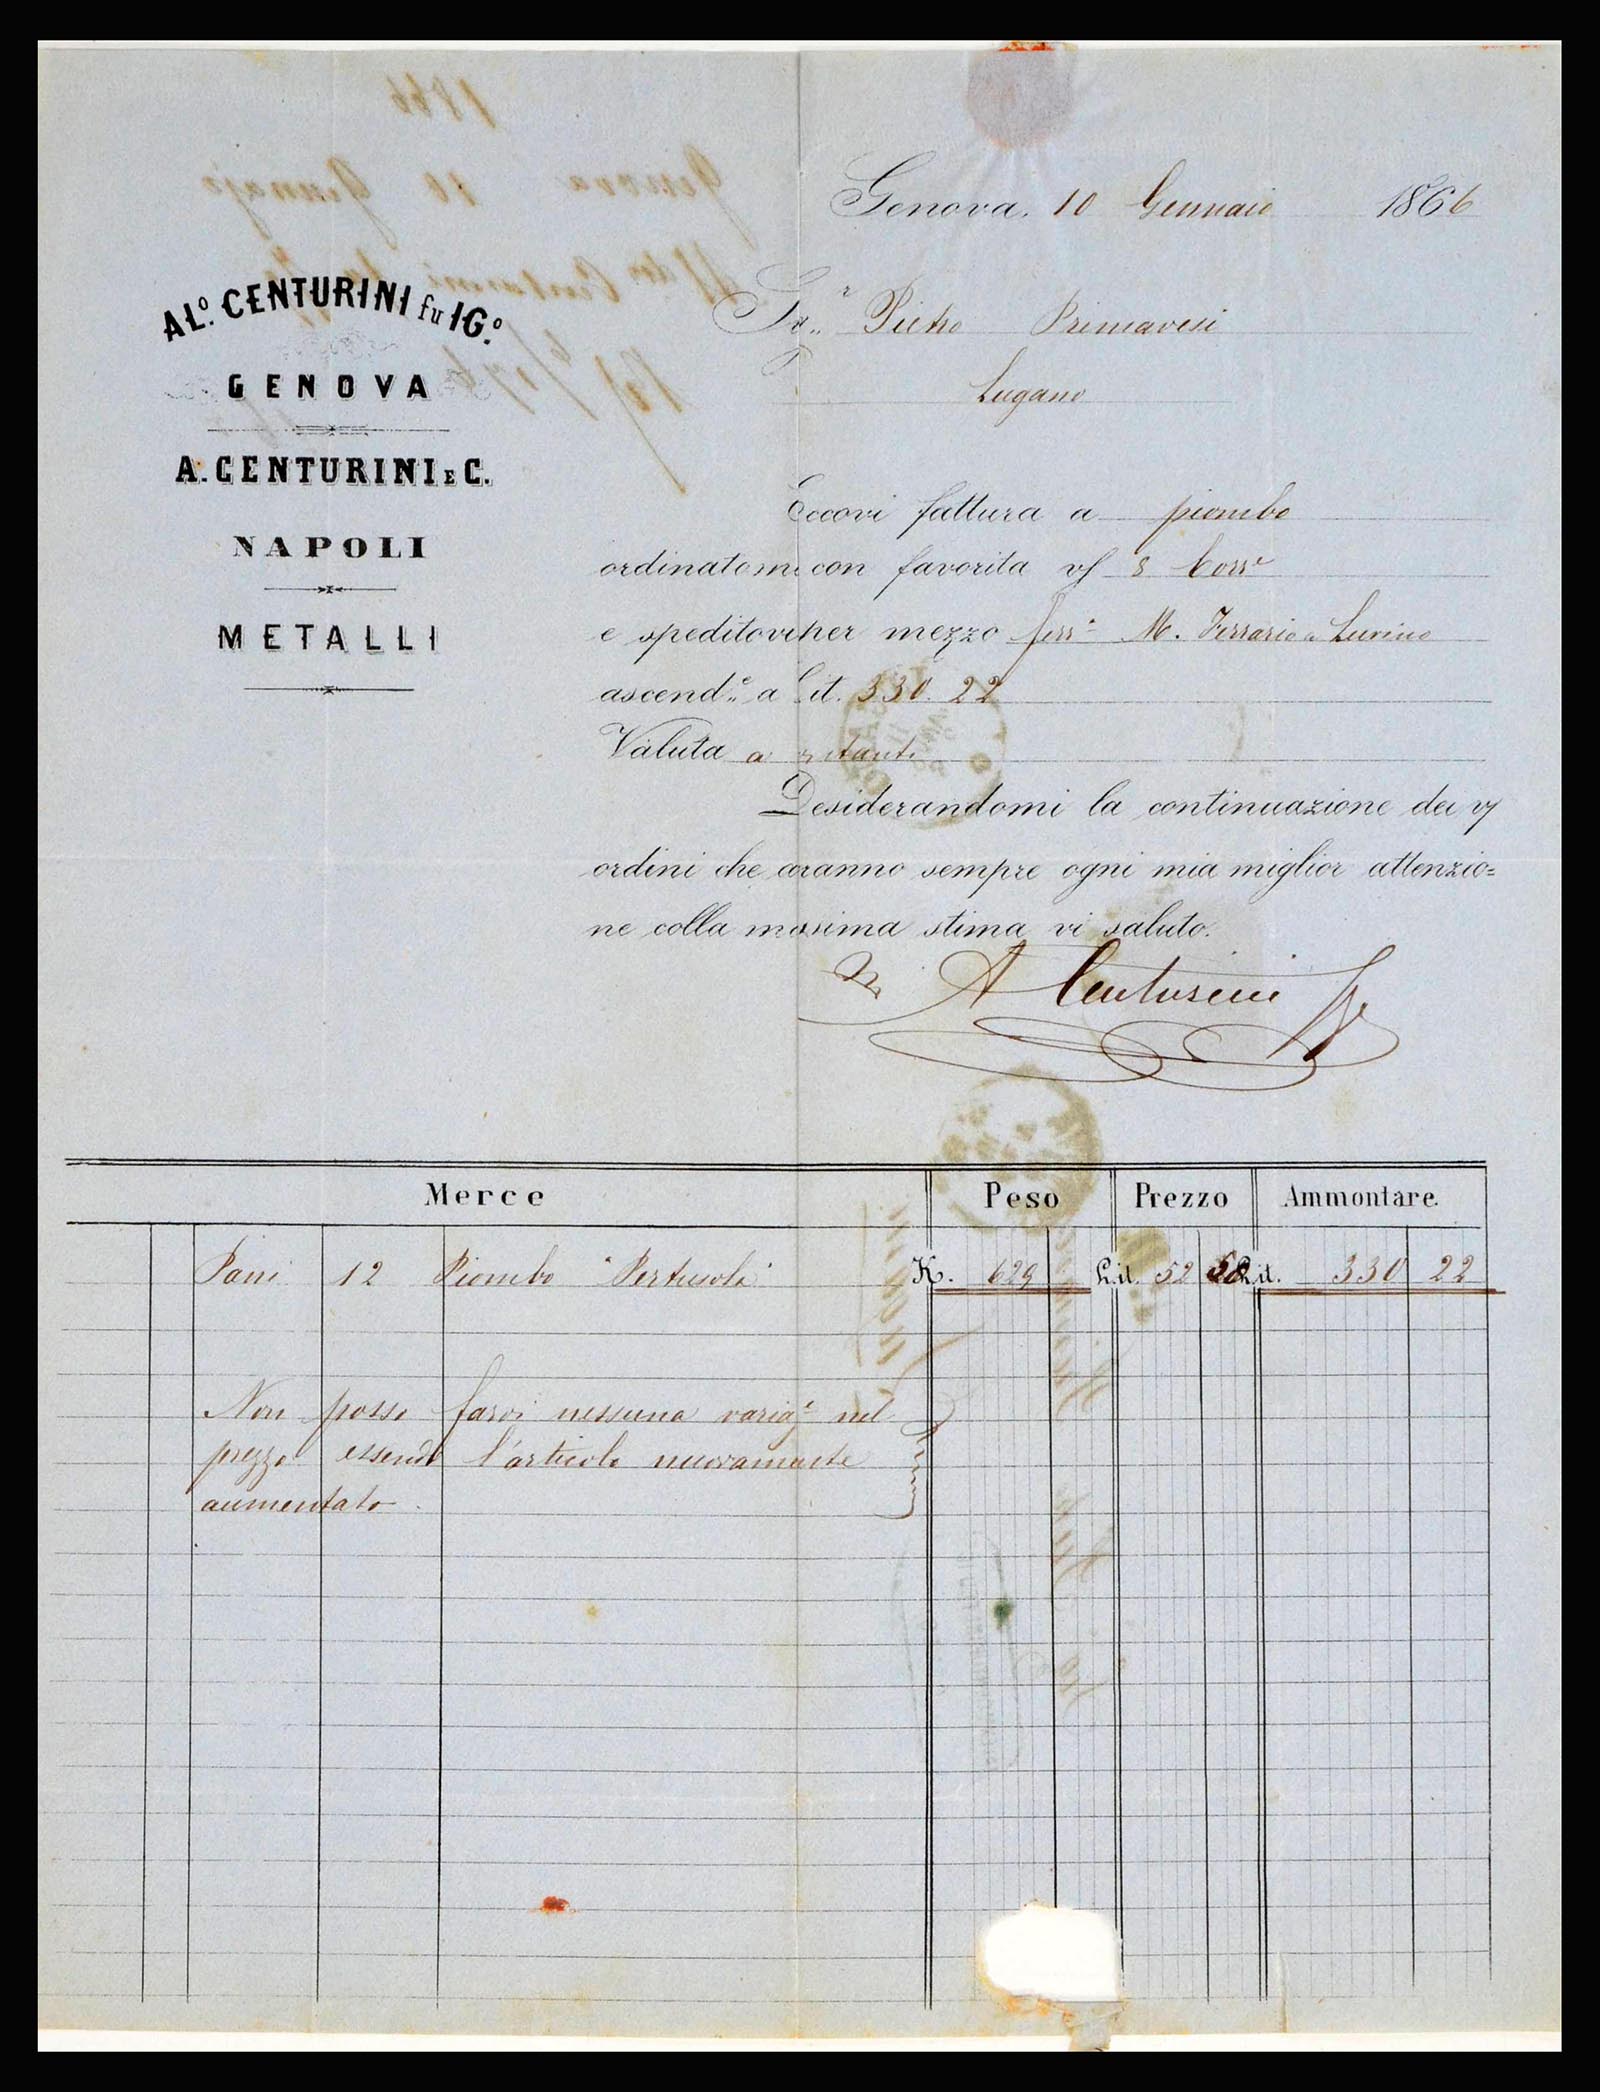 Genova, 10 Gennaio 1866
AL.º CENTURINI fu IG.º
GENOVA
A. CENTURINI E C.
NAPOLI
METALLI
Sr. Pietro Primavesi
Lugano
Eccovi fattura a piombo
ordinatomi con favorita v/ 8 Corre
e speditovi per mezzo ferra M. Ferrario a Luvino
ascend.e a Lit. 330. 22
Valuta a contanti
Desiderandomi la continuazione dei v/
ordini che avranno sempre ogni mia miglior attenzio=
ne colla massima stima vi saluto.
A Centurini
Merce Peso Prezzo Ammontare.
Pani 12 Piombo "Pertusola" K. 629 Lit. 52 50 Lit. 330 22
Non posso farvi nessuna variaz.e nel
prezzo essendo l'articolo nuovamente
aumentato.
1866
Genova 10 Gennajo